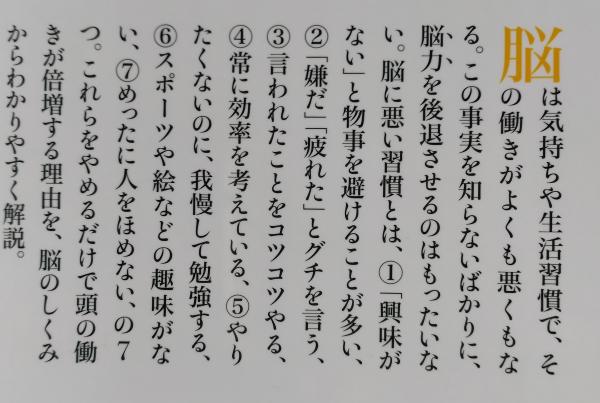 脳は気持ちや生活習慣で、そ
の働きがよくも悪くもな
る。この事実を知らないばかりに、
脳力を後退させるのはもったいな
い。脳に悪い習慣とは、①「興味が
ない」と物事を避けることが多い、
②「嫌だ」「疲れた」とグチを言う、
③言われたことをコツコツやる、
④常に効率を考えている、⑤やり
たくないのに、我慢して勉強する、
⑥スポーツや絵などの趣味がな
い、⑦めったに人をほめない、の7
つ。これらをやめるだけで頭の働
きが倍増する理由を、脳のしくみ
からわかりやすく解説。